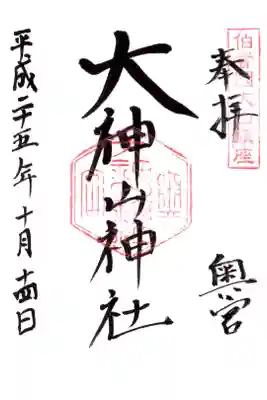 奉拝
奥宮
大神山神社
平成二十五年十月十四日